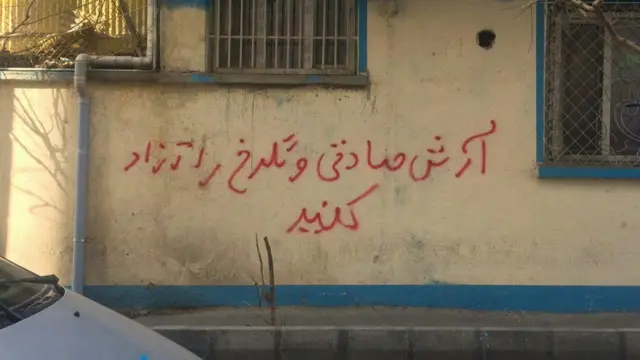 آرش صادقی و گلرخ را آزاد
کنید